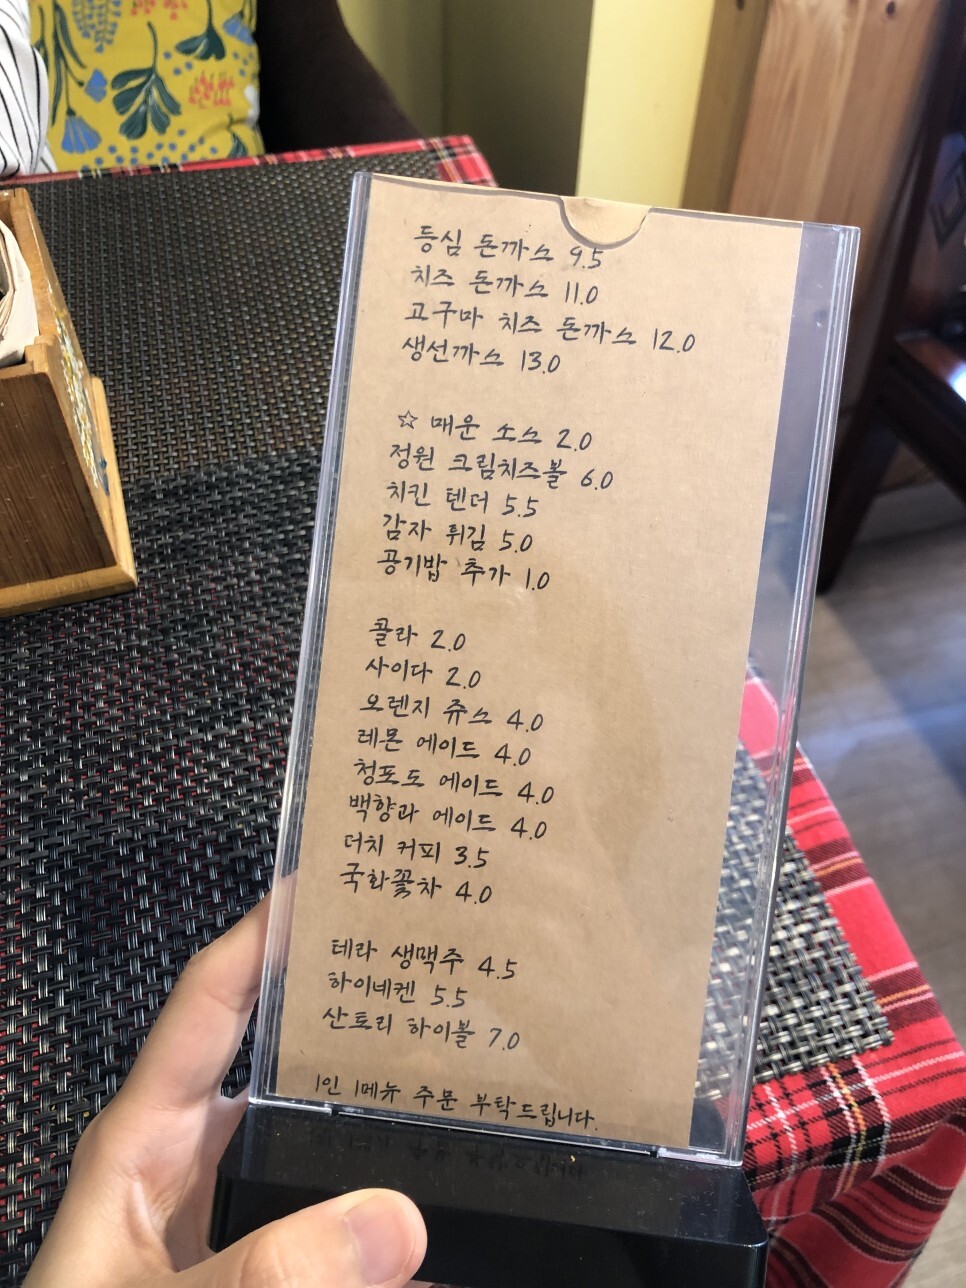 등심 돈까스 9.5
치즈 돈까스 11.0
고구마 치즈 돈까스 12.0
생선까스 13.0
☆ 매운 소스 2.0
정원 크림치즈볼 6.0
치킨 텐더 5.5
감자 튀김 5.0
공기밥 추가 1.0
콜라 2.0
사이다 2.0
오렌지 쥬스 4.0
레몬 에이드 4.0
청포도 에이드 4.0
백향과 에이드 4.0
더치 커피 3.5
국화꽃차 4.0
테라 생맥주 4.5
하이네켄 5.5
산토리 하이볼 7.0
1인 1메뉴 주문 부탁드립니다.